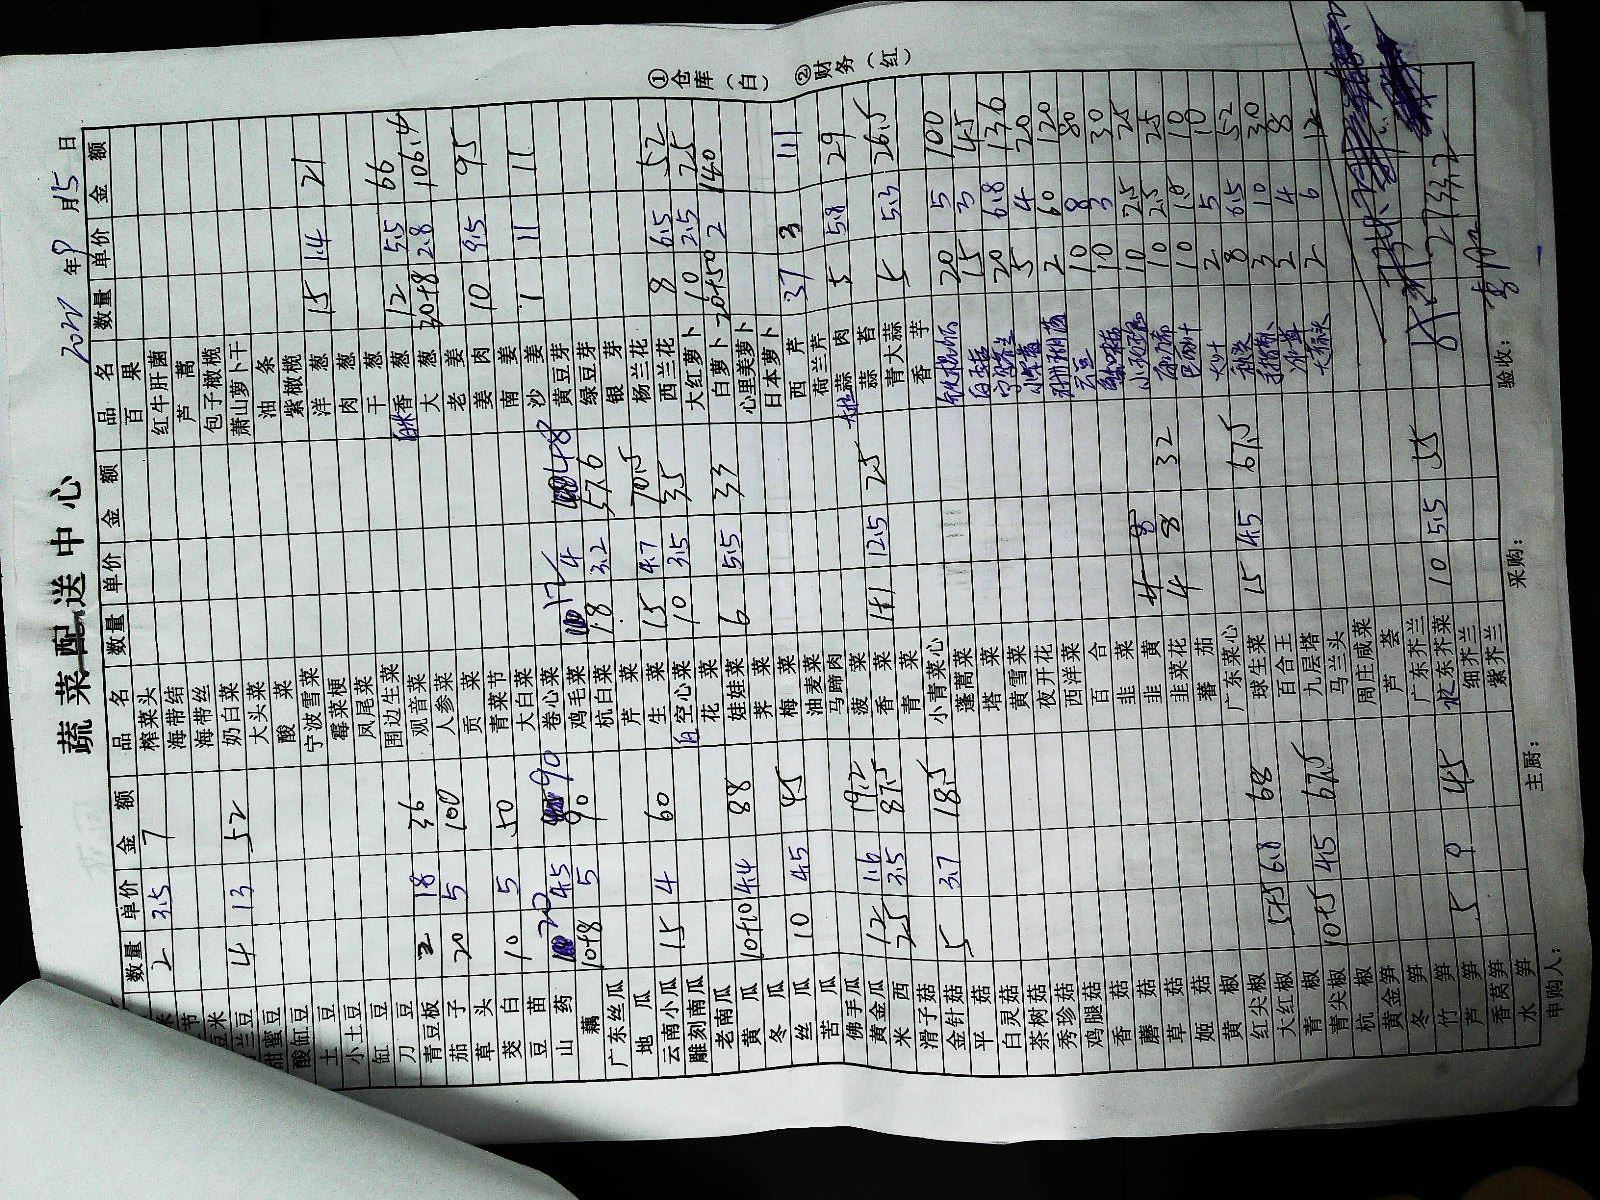 蔬菜配送中心
2022年9月15日
品名 数量 单价 金额 品名 数量 单价 金额 品名 数量 单价 金额
米 2 3.5 7 榨菜头 百果
节 海带结 红牛肝菌
豆米 海带丝 芦蒿
兰豆 4 13 52 奶白菜 包子橄榄
甜蜜豆 大头菜 萧山萝卜干
酸缸豆 酸菜 油条
土豆 宁波雪菜 紫橄榄
小土豆 霉菜梗 洋葱 15 1.4 21
缸豆 凤尾菜 肉葱
刀豆 围边生菜 干葱
青豆板 2 18 36 观音菜 香葱 12 5.5 66
茄子 20 5 100 人参菜 大葱 30+8 2.8 106.4
草头 贡菜 老姜
茭白 10 5 50 青菜节 姜肉 10 9.5 95
豆苗 大白菜 南姜
山药 20 4.5 90 卷心菜 12 4 48 沙姜 1 11 11
藕 10+8 5 90 鸡毛菜 18 3.2 57.6 黄豆芽
广东丝瓜 杭白菜 绿豆芽
地瓜 芹菜 银芽
云南小瓜 15 4 60 生菜 15 4.7 70.5 杨兰花
雕刻南瓜 白空心菜 10 3.5 35 西兰花 8 6.5 52
老南瓜 花菜 大红萝卜 10 2.5 25
黄瓜 10+10 4.4 88 娃娃菜 6 5.5 33 白萝卜 20+50 2 140
冬瓜 荠菜 心里美萝卜
丝瓜 10 4.5 45 梅菜 日本萝卜
苦瓜 油麦菜 西芹 37 3 111
佛手瓜 马蹄肉 荷兰芹
黄金瓜 12 1.6 19.2 菠菜 蒜肉 5 5.8 29
米西 25 3.5 87.5 香菜 1+1 12.5 25 蒜苔
滑子菇 青菜 青大蒜 5 5.3 26.5
金针菇 5 3.7 18.5 小青菜心 香芋
平菇 蓬蒿菜 20 5 100
白灵菇 塔菜 白玉菇 15 3 45
茶树菇 黄雪菜 20 6.8 136
秀珍菇 夜开花 5 4 20
鸡腿菇 西洋菜 2 60 120
香菇 百合 云豆 10 8 80
蘑菇 韭菜 10 3 30
草菇 韭黄 4 8 10 2.5 25
姬菇 韭菜花 4 8 32 10 2.5 25
黄椒 番茄 10 1.0 10
红尖椒 广东菜心 2 5 10
大红椒 5+5 6.8 68 球生菜 15 4.5 67.5 秋葵 8 6.5 52
青椒 百合王 3 10 30
青尖椒 10+5 4.5 67.5 九层塔 冰草 2 4 8
杭椒 马兰头 2 6 12
黄金笋 周庄咸菜
冬笋 芦荟
竹笋 广东芥兰
芦笋 5 9 45 水东芥菜 10 5.5 55 2733.2
香莴笋 细芥兰
水笋 紫芥兰
申购人： 主厨： 采购： 验收：
①仓库（白） ②财务（红）